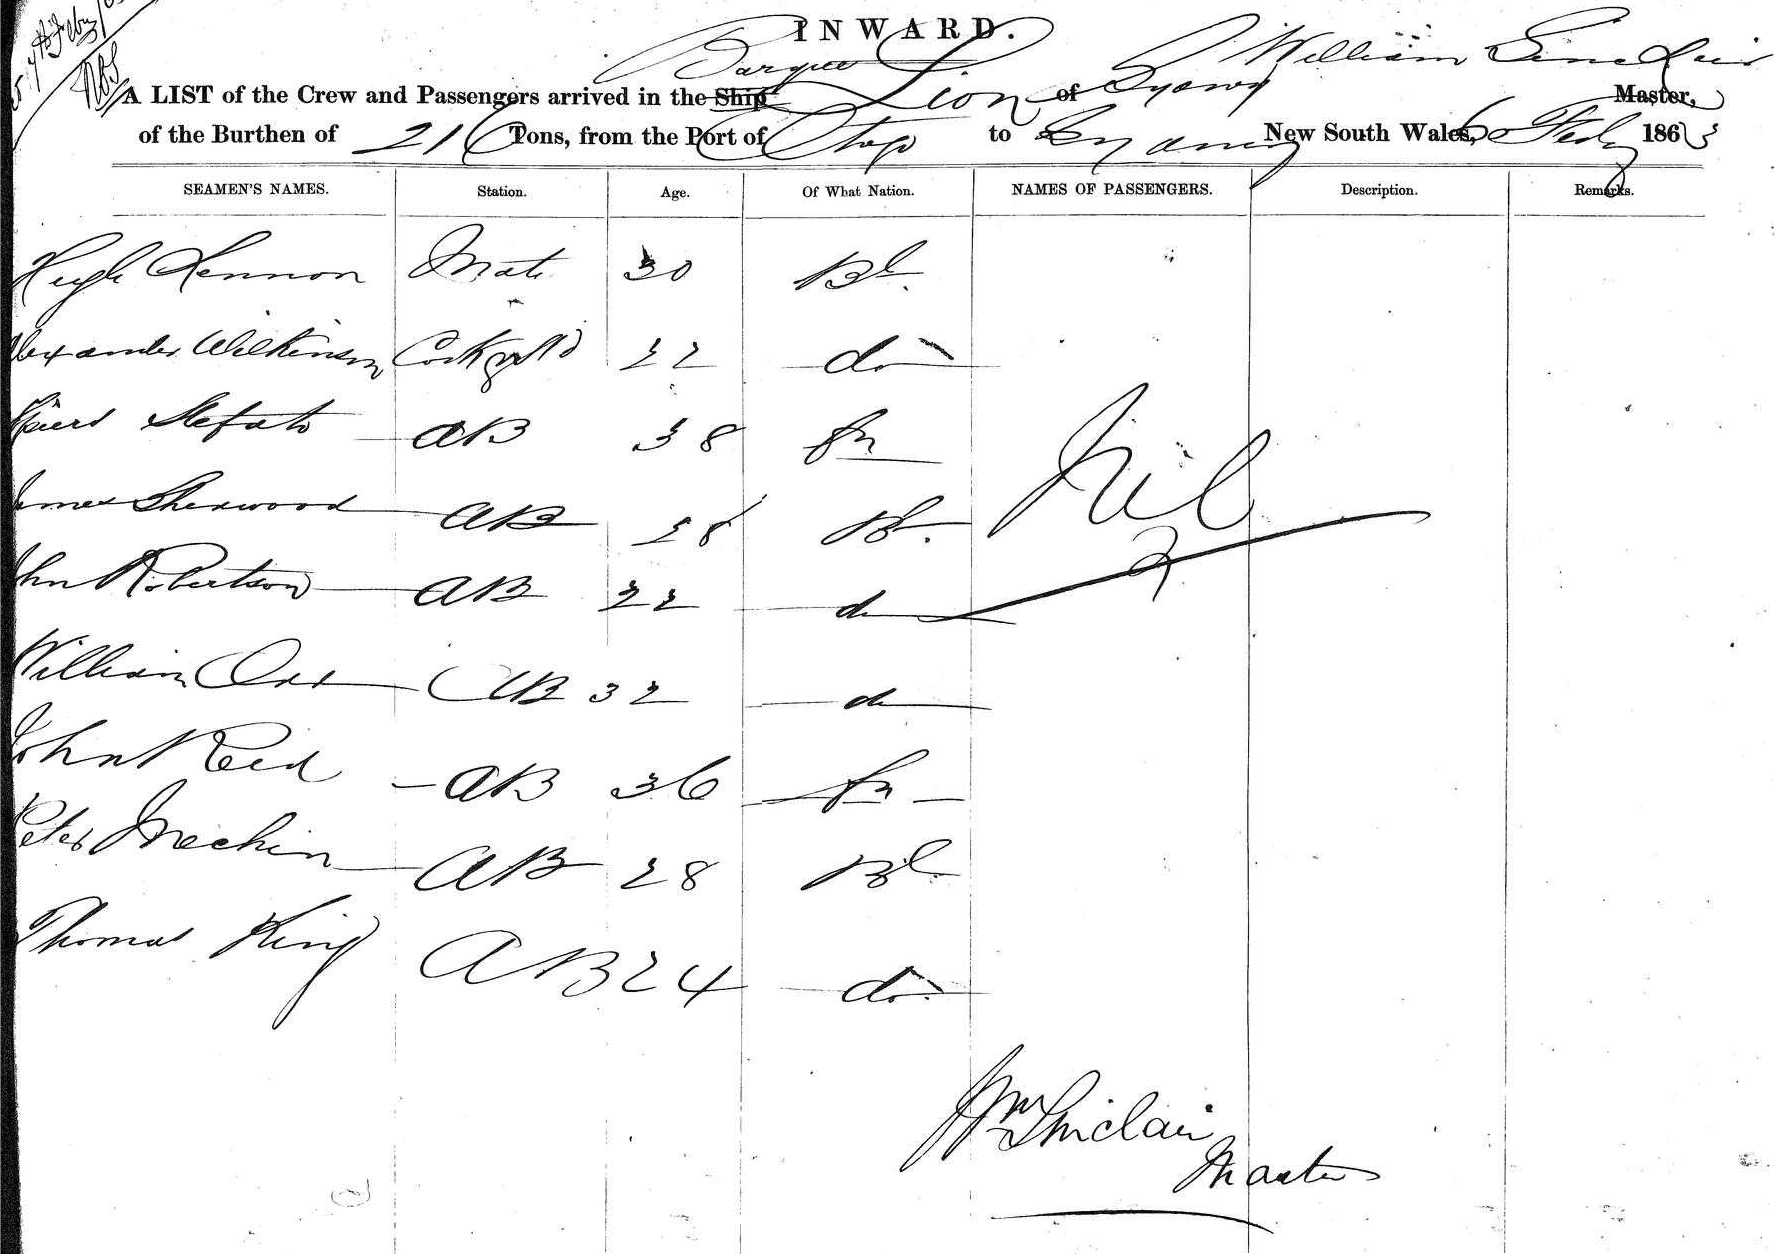 INWARD.
Barque Lion William Sinclair
A LIST of the Crew and Passengers arrived in the Ship of Sydney Master,
of the Burthen of Tons, from the Port of Otago to Sydney New South Wales, 6 Feby 1863
SEAMEN'S NAMES. Station. Age. Of What Nation. NAMES OF PASSENGERS. Description. Remarks.
Hugh Lennon Mate 30 Bh.
Alexander Wilkinson 22 do
38 fn
James Sherwood AB 28 Bh.
John Robertson AB 22 do
William Orr AB 32 do
John Reid AB 36 fn
Peter Mechin AB 28 Bh
Thomas King AB 24 do
Nil
Wm Sinclair
Master